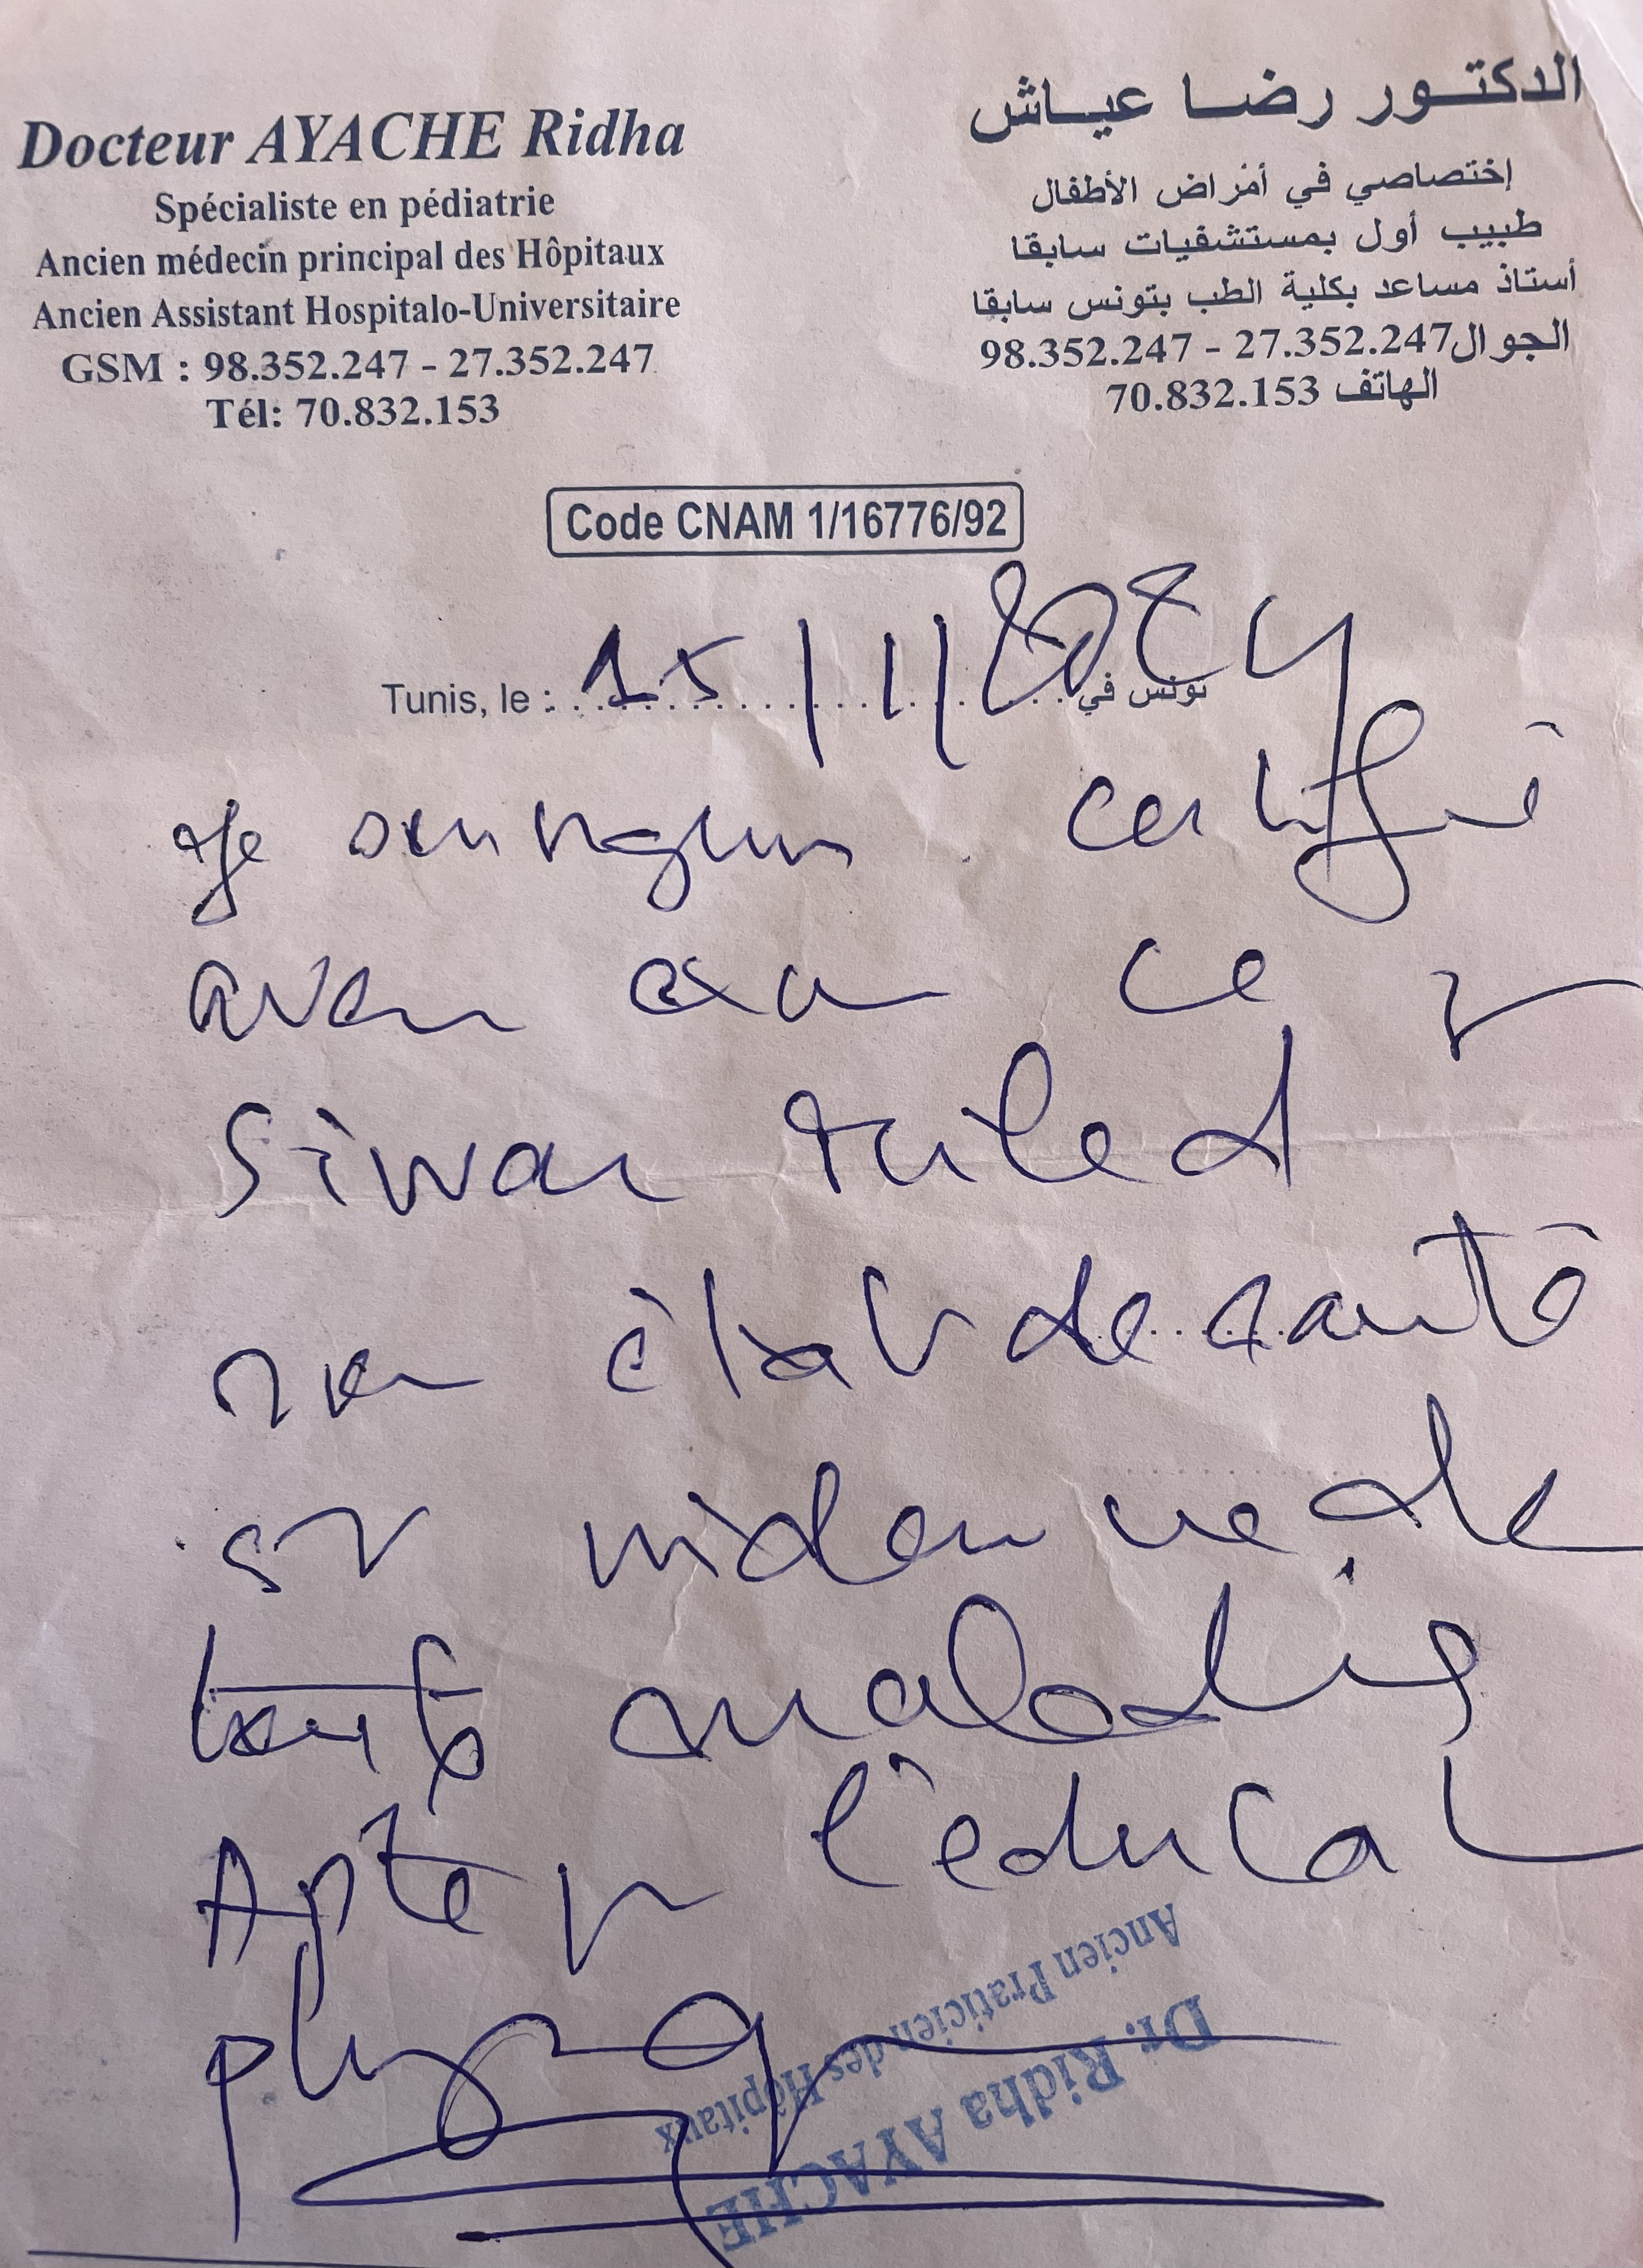 Docteur AYACHE Ridha
Spécialiste en pédiatrie
Ancien médecin principal des Hôpitaux
Ancien Assistant Hospitalo-Universitaire
GSM : 98.352.247 - 27.352.247
Tél: 70.832.153
الدكتور رضا عياش
إختصاصي في أمراض الأطفال
طبيب أول بمستشفيات سابقا
أستاذ مساعد بكلية الطب بتونس سابقا
الجوال 27.352.247 - 98.352.247
الهاتف 70.832.153
Code CNAM 1/16776/92
Tunis, le : 15/1/2024 تونس في
Je soussigné certifie
avoir exa ce jr
Siwar Miled
son état de santé
est indemne de
toute maladie
Apte pr l'éducat
physique
Dr. Ridha AYACHE
Ancien Praticien des Hôpitaux